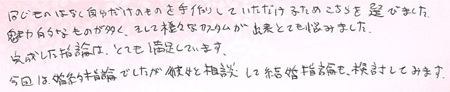 同じものはなく自分だけのものを手作りしていただけるためこちらを選びました。
魅力的なものが多く、そして様々なカスタムが出来とても悩みました。
完成した指論は、とても満足しています。
今回は婚約指論でしたが彼女と相談して結婚指論も、検討してみます。